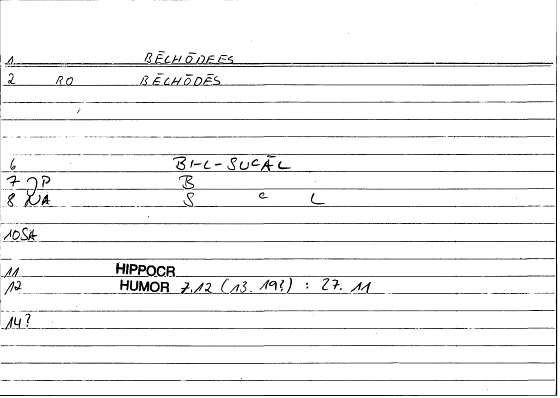 1 BĒCHŌDEES
2 RO BĒCHŌDĒS
6 BI-L-SUCĀL
7 JP B
8 NA S c L
10 SA
11 HIPPOCR
12 HUMOR 7.12 (13. 19?) : 27. 11
14?